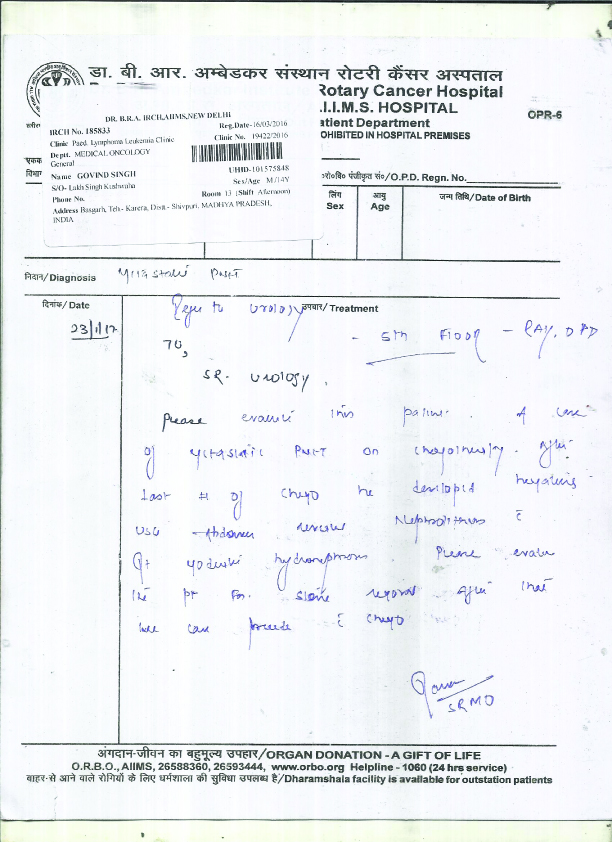 डा. बी. आर. अम्बेडकर संस्थान रोटरी कैंसर अस्पताल
Rotary Cancer Hospital
.I.I.M.S. HOSPITAL
atient Department
OPR-6
OHIBITED IN HOSPITAL PREMISES
DR. B.R.A. IRCH,AIIMS,NEW DELHI
IRCH No. 185833
Reg.Date-16/03/2016
Clinic Paed. Lymphoma Leukemia Clinic
Clinic No. 19422/2016
Deptt. MEDICAL ONCOLOGY
General
UHID-101575848
Name GOVIND SINGH
Sex/Age M/14Y
S/O- Lakh Singh Kushwaha
Room 13 (Shift Afternoon)
Phone No.
Address Basgarh, Teh- Karera, Distt- Shivpuri, MADHYA PRADESH,
INDIA
एकक
विभाग
पंजीकृत सं०/O.P.D. Regn. No.
लिंग
Sex
आयु
Age
जन्म तिथि/Date of Birth
निदान/Diagnosis Metastatic PNET
दिनांक/Date
उपचार/Treatment
23/1/17
Refer to Urology
- 5th Floor - RAK. OPD
To,
SR. Urology,
Please evaluate this patient. A case
of metastatic PNET on chemotherapy. After
last # of chemo he developed hematuria
USG -Abdomen reveals Nephrolithiasis c̄
Rt moderate hydronephrosis Please evaluate
the pt for stone removal after that
we can proceed c̄ chemo
SRMO
अंगदान-जीवन का बहुमूल्य उपहार/ORGAN DONATION - A GIFT OF LIFE
O.R.B.O., AIIMS, 26588360, 26593444, www.orbo.org Helpline - 1060 (24 hrs service)
बाहर-से आने वाले रोगियों के लिए धर्मशाला की सुविधा उपलब्ध है/Dharamshala facility is available for outstation patients